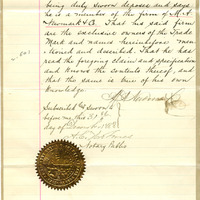 being duly sworn deposes and says
he is a member of the firm of M. A.
Newmark & Co. That his said firm
are the exclusive owners of the Trade
Mark and names hereinbefore men
tioned and described. That he has
read the foregoing claim and specification
and knows the contents thereof, and
that the same is true of his own
knowledge.
M. A. Newmark
Subscribed & Sworn to
before me, this 31st
day of
Notary Public